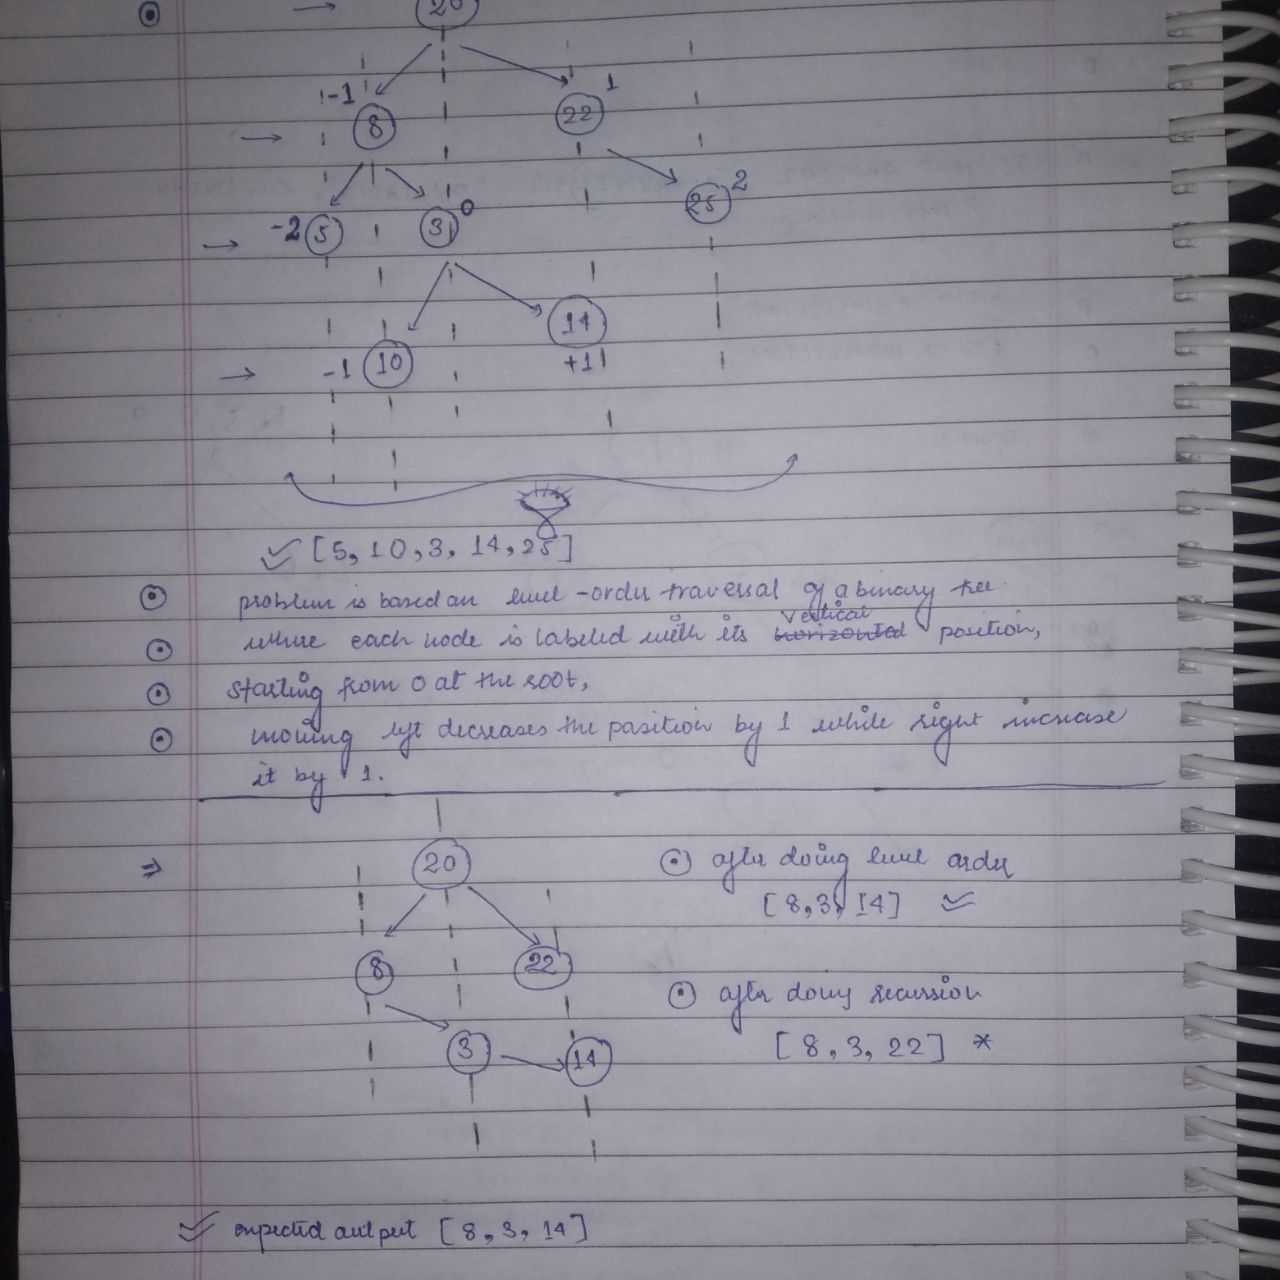 20
-1 1
8 22
2
25
-2 5 3 0
14
-1 10 +1
[5, 10, 3, 14, 25]
problem is based on level-order traversal of a binary tree
where each node is labeled with its vertical position,
starting from 0 at the root,
moving left decreases the position by 1 while right increase
it by 1.
20
after doing level order
[8,3,14]
8 22
after doing recursion
3 14
[8,3,22] *
expected output [8,3,14]